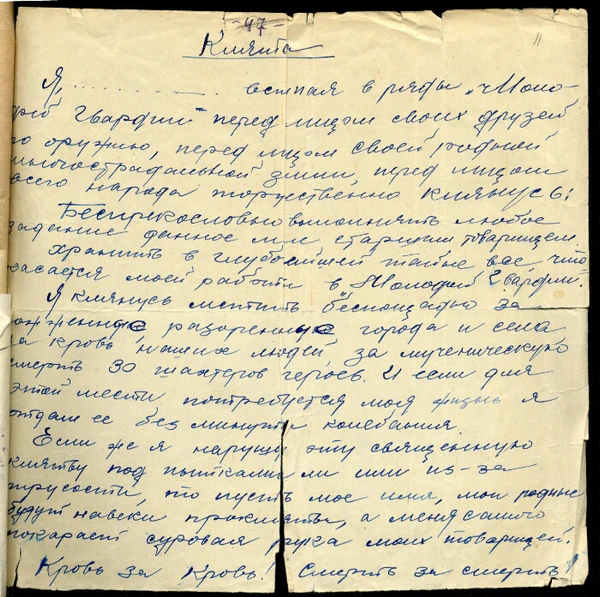 47
Клятва
Я, ............... вступая в ряды „Моло-
дой Гвардии" перед лицом своих друзей
по оружию, перед лицом своей родной
многострадальной земли, перед лицом
всего народа торжественно клянусь:
Беспрекословно выполнять любое
задание данное мне старшим товарищем
хранить в глубочайшей тайне все что
касается моей работы в „Молодой Гвардии".
Я клянусь мстить беспощадно за
сожженные разоренные города и села
за кровь наших людей, за мученическую
смерть 30 шахтеров героев. И если для
этой мести потребуется моя жизнь я
отдам ее без минуты колебания.
Если же я нарушу эту священную
клятву под пытками ли или из-за
трусости, то пусть мое имя, мои родные
будут навеки прокляты, а меня самого
покарает суровая рука моих товарищей.
Кровь за Кровь! Смерть за смерть!